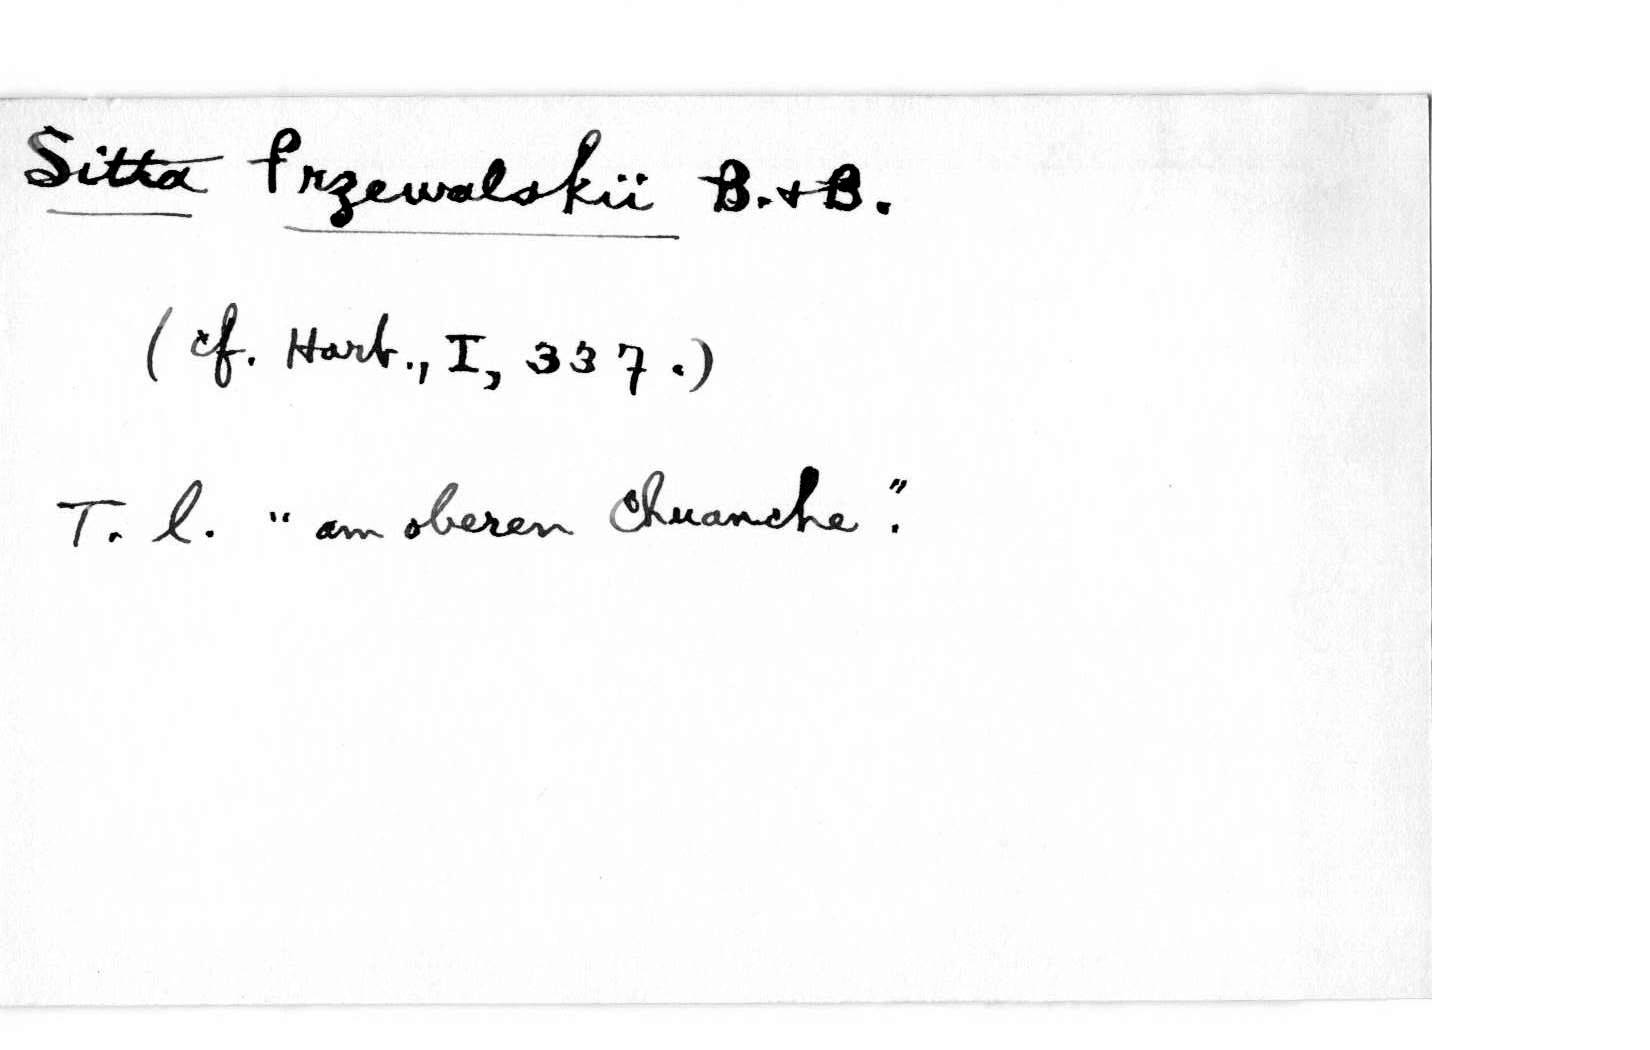 Sitta Przewalskii B. & B.
(cf. Hart., I, 337.)
T. l. "am oberen Chuanche".